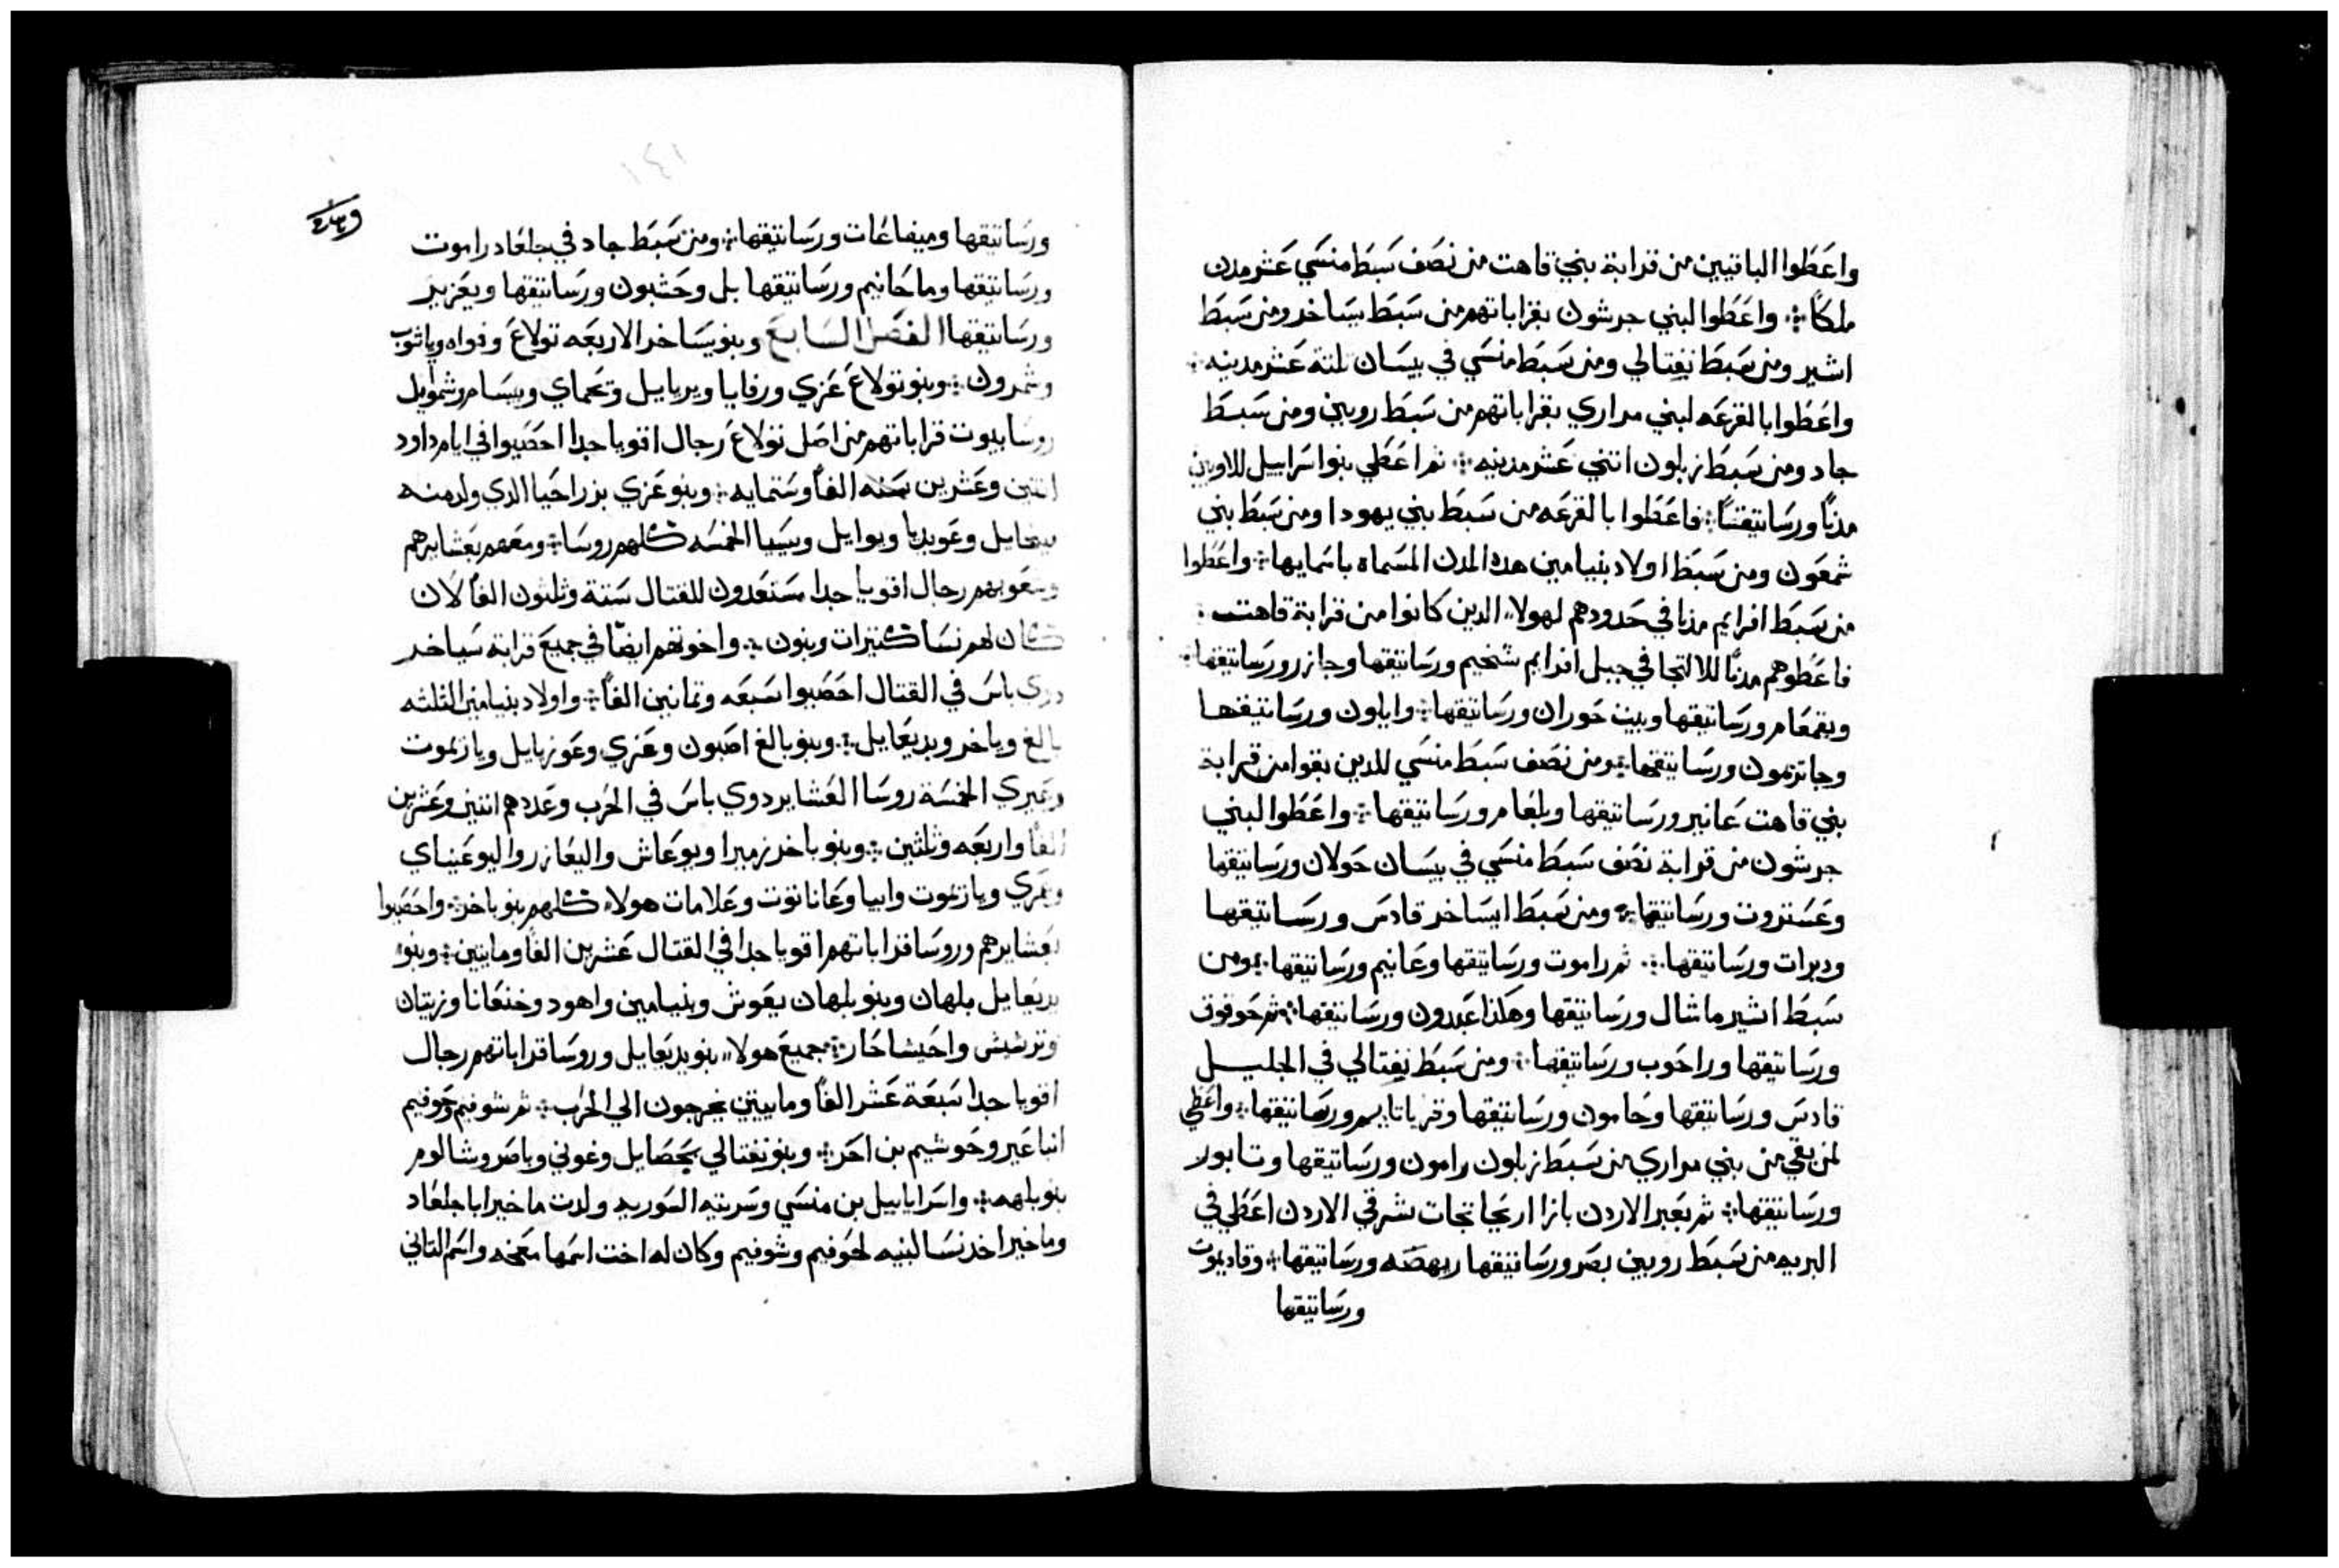 واعطوا الباقيين من قرابة بني قاهت من نصف سبط منسي عشر مدن
ملكًا ܀ واعطوا لبني جرشون بقراباتهم من سبط يساخر ومن سبط
اشير ومن سبط نفتالي ومن سبط منسي في بيسان تلتة عشر مدينه ܀
واعطوا بالقرعه لبني مراري بقراباتهم من سبط روبين ومن سبط
جاد ومن سبط زبلون اتني عشر مدينه ܀ تم اعطي بنو اسراييل للاويين
مدنًا ورساتيقنًا ܀ فاعطوا بالقرعه من سبط بني يهودا ومن سبط بني
شمعون ومن سبط اولاد بنيامين هده المدن المسماه باسمايها ܀ واعطوا
من سبط افرايم مدنا في حدودهم لهولاء الدين كانوا من قرابة قاهت ܀
فاعطوهم مدنًا للالتجا في جبل افرايم شخيم ورساتيقها وجازر ورساتيقها ܀
ويقمعام ورساتيقها وبيت حوران ورساتيقها ܀ واياون ورساتيقها
وجاترمون ورساتيقها ܀ ومن نصف سبط منسي للدين بقوا من قرابة
بني قاهت عانير ورساتيقها وبلعام ورساتيقها ܀ واعطوا لبني
جرشون من قرابة نصف سبط منسي في بيسان حولان ورساتيقها
وعستروت ورساتيقها ܀ ومن سبط ايساخر قادس ورساتيقها
ودبرات ورساتيقها ܀ تم راموت ورساتيقها وعانيم ورساتيقها ܀ ومن
سبط اشير ماشال ورساتيقها وهكذا عبدون ورساتيقها ܀ تم حوقوق
ورساتيقها وراحوب ورساتيقها ܀ ومن سبط نفتالي في الجليل
قادس ورساتيقها وحامون ورساتيقها وقرياتايم ورساتيقها ܀ واعطي
لمن بقي من بني مراري من سبط زبلون رامون ورساتيقها وتابور
ورساتيقها ܀ تم بعبر الاردن بازا اريحا تجات شرقي الاردن اعطي في
البريه من سبط روبين بصر ورساتيقها ريهصه ورساتيقها ܀ وقاديموت
ورساتيقها
١٤١
ورساتيقها وميفاعات ورساتيقها ܀ ومن سبط جاد في جلعاد راموت
ورساتيقها وماحانيم ورساتيقها بل وحشبون ورساتيقها ويعزير
ورساتيقها الفصل السابع وبنو يساخر الاربعه تولاع وفواه وياشوب
وشمرون ܀ وبنو تولاع عزي ورفايا ويريايل وتحماي ويبسام وشمويل
روسا بيوت قراباتهم من اصل تولاع رجال اقويا جدا احصيوا في ايام داود
اتنين وعشرين الفًا وستمايه ܀ وبنو عزي يزراحيا الدي ولد منه
ميخايل وعوبديا ويوايل ويسيا الخمسه كلهم روسا ܀ ومعهم بعشايرهم
وشعوبهم رجال اقويا جدا مستعدون للقتال ستة وثلتون الفًا لان
كان لهم نسا كتيرات وبنون ܀ واخوتهم ايضًا في جميع قرابة سياخر
دوي باس في القتال احصيوا سبعه وتمانين الفًا ܀ واولاد بنيامين التلته
بالغ وباخر ويديعايل ܀ وبنو بالغ اصبون وعزي وعوزيايل ويازيموت
وعيري الخمسة روسا العشاير دوي باس في الحرب وعددهم اتنين وعشرين
الفًا واربعه وثلثين ܀ وبنو باخر زميرا ويوعاش واليعازر واليوعيناي
وعمري ويازعوت وابيا وعاناتوت وعلامات هولاء كلهم بنو باخر ܀ واحصيوا
بعشايرهم وروسا قراباتهم اقويا جدا في القتال عشرين الفًا ومايتين ܀ وبنو
يديعايل بلهان وبنو بلهان يعوش وبنيامين واهود وخنعانا وزيتان
وترشيش واحيشاحار ܀ جميع هولاء بنو يديعايل وروسا قراباتهم رجال
اقويا جدا سبعة عشر الفًا ومايتين يخرجون الي الحرب ܀ تم شوفيم وحوفيم
ابنا عير وحوشيم بن احر ܀ وبنو نفتالي يحصايل وغوني وياصر وشالوم
بنو بلهه ܀ واسرايابيل بن منسي وسريته السوريه ولدت ماخير ابا جلعاد
وماخير اخد نسا لبنيه لحوفيم وشوفيم وكان له اخت اسمها معخه واسم التاني